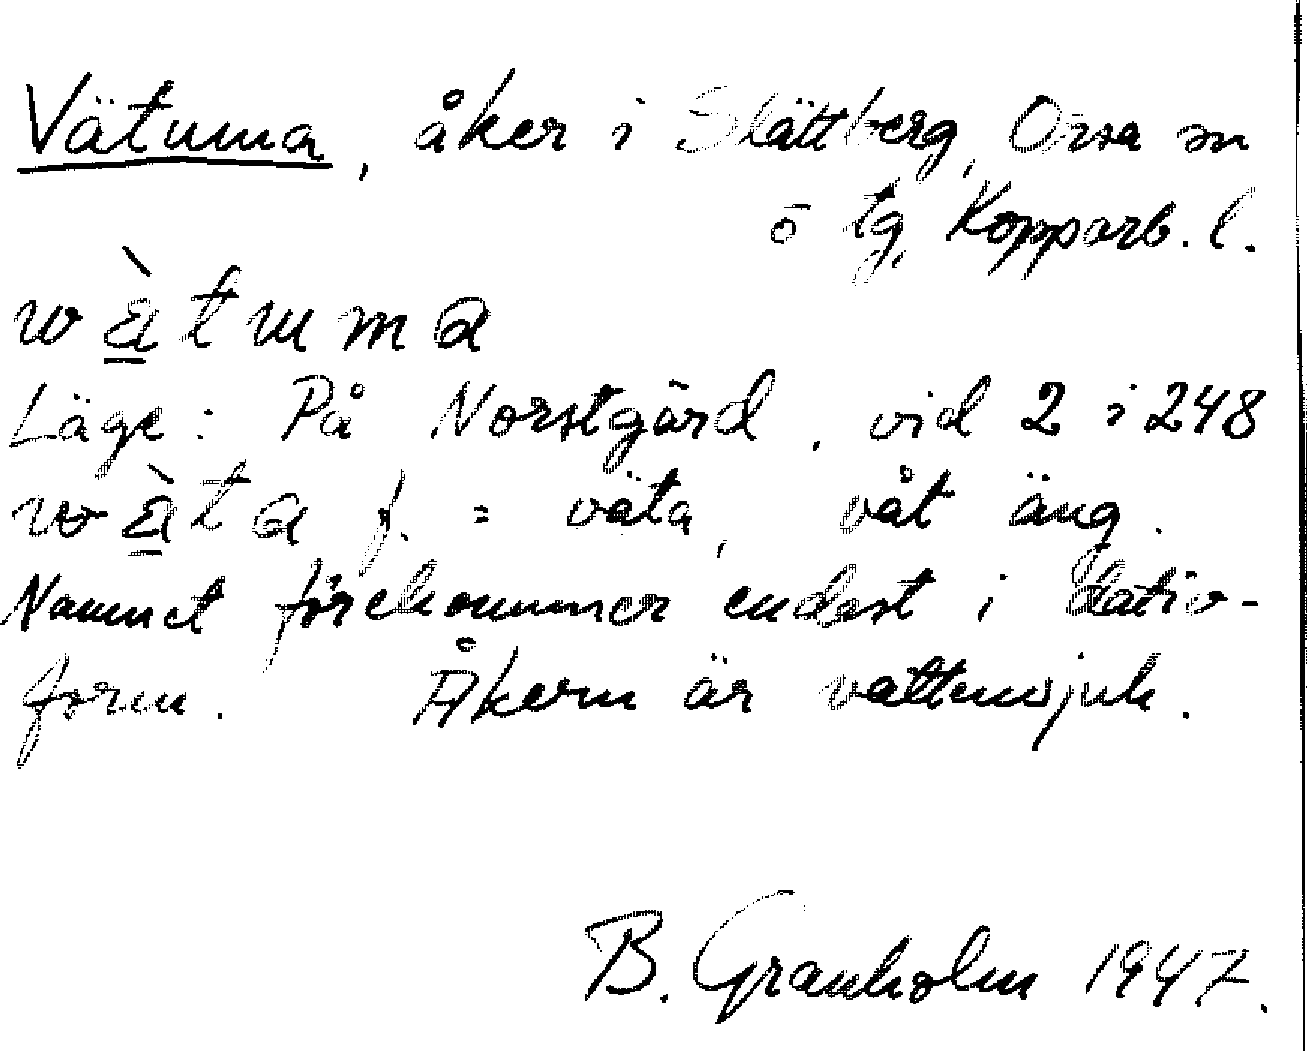 Vätuma, åker i Slättberg, Orsa sn
ö tg, Kopparb. l.
wä̀tuma
Läge: På Norstgärd, vid 2 i 248
wä̀ta f. = väta, våt äng.
Namnet förekommer endast i dativ-
form. Åkern är vattensjuk.
B. Granholm 1947.